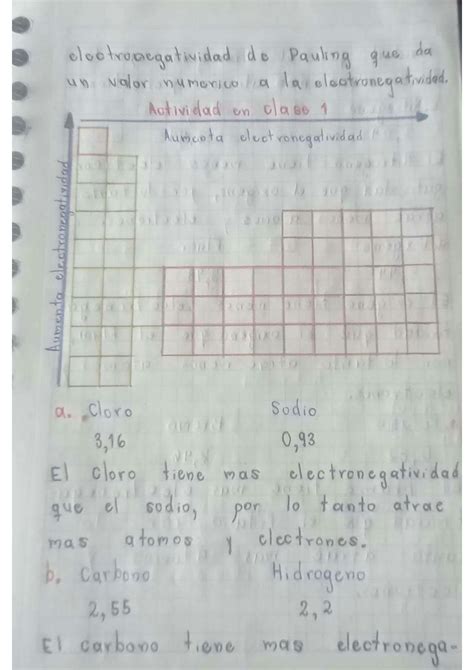 electronegatividad de Pauling que da
un valor numerico a la electronegatividad.
Actividad en clase 1
Aumenta electronegatividad
Aumenta electronegatividad
a. Cloro Sodio
3,16 0,93
El cloro tiene mas electronegatividad
que el sodio, por lo tanto atrae
mas atomos y electrones.
b. Carbono Hidrogeno
2,55 2,2
El carbono tiene mas electronega-